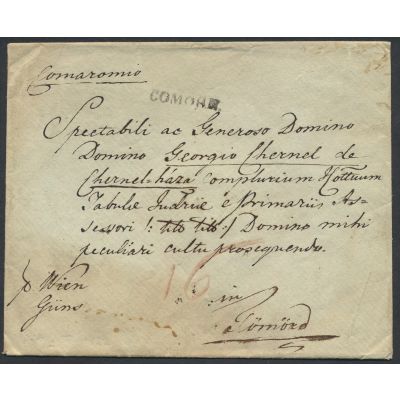 Comaromio
COMORN.
Spectabili ac Generoso Domino
Domino Georgio Chernel de
Chernel-háza Complurium Cottuum
Tabulæ Judriæ é Primariis As-
sessori /: tito tito :/ Domino mihi
peculiari cultu prosequendo.
16
p Wien
Güns
in
Tömörd